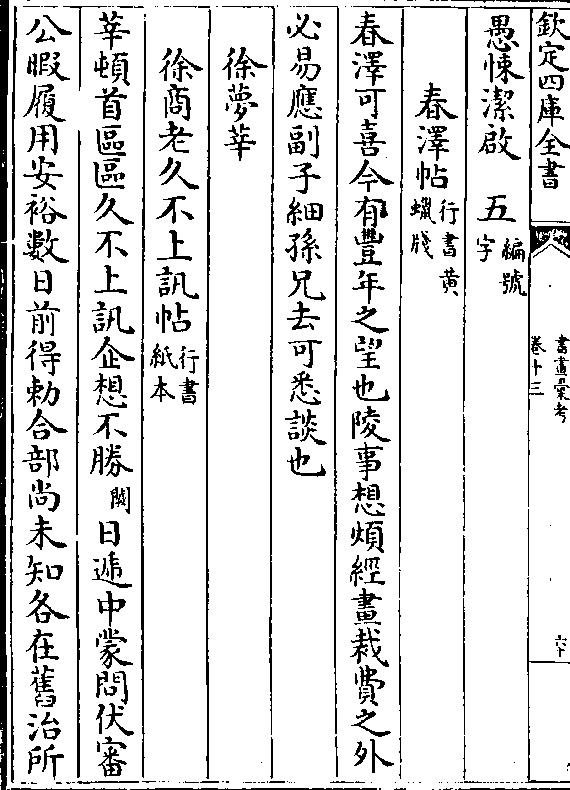 欽定四庫全書
書畫彙考
卷十三
六十
愚悚潔啟 五編號字
春澤帖行書黃蠟牋
春澤可喜今有豐年之望也陵事想煩經畫裁費之外
必易應副子細孫兄去可悉談也
徐夢莘
徐商老久不上訊帖行書紙本
莘頓首區區久不上訊企想不勝闕日遞中蒙問伏審
公暇履用安裕數日前得勅合部尚未知各在舊治所